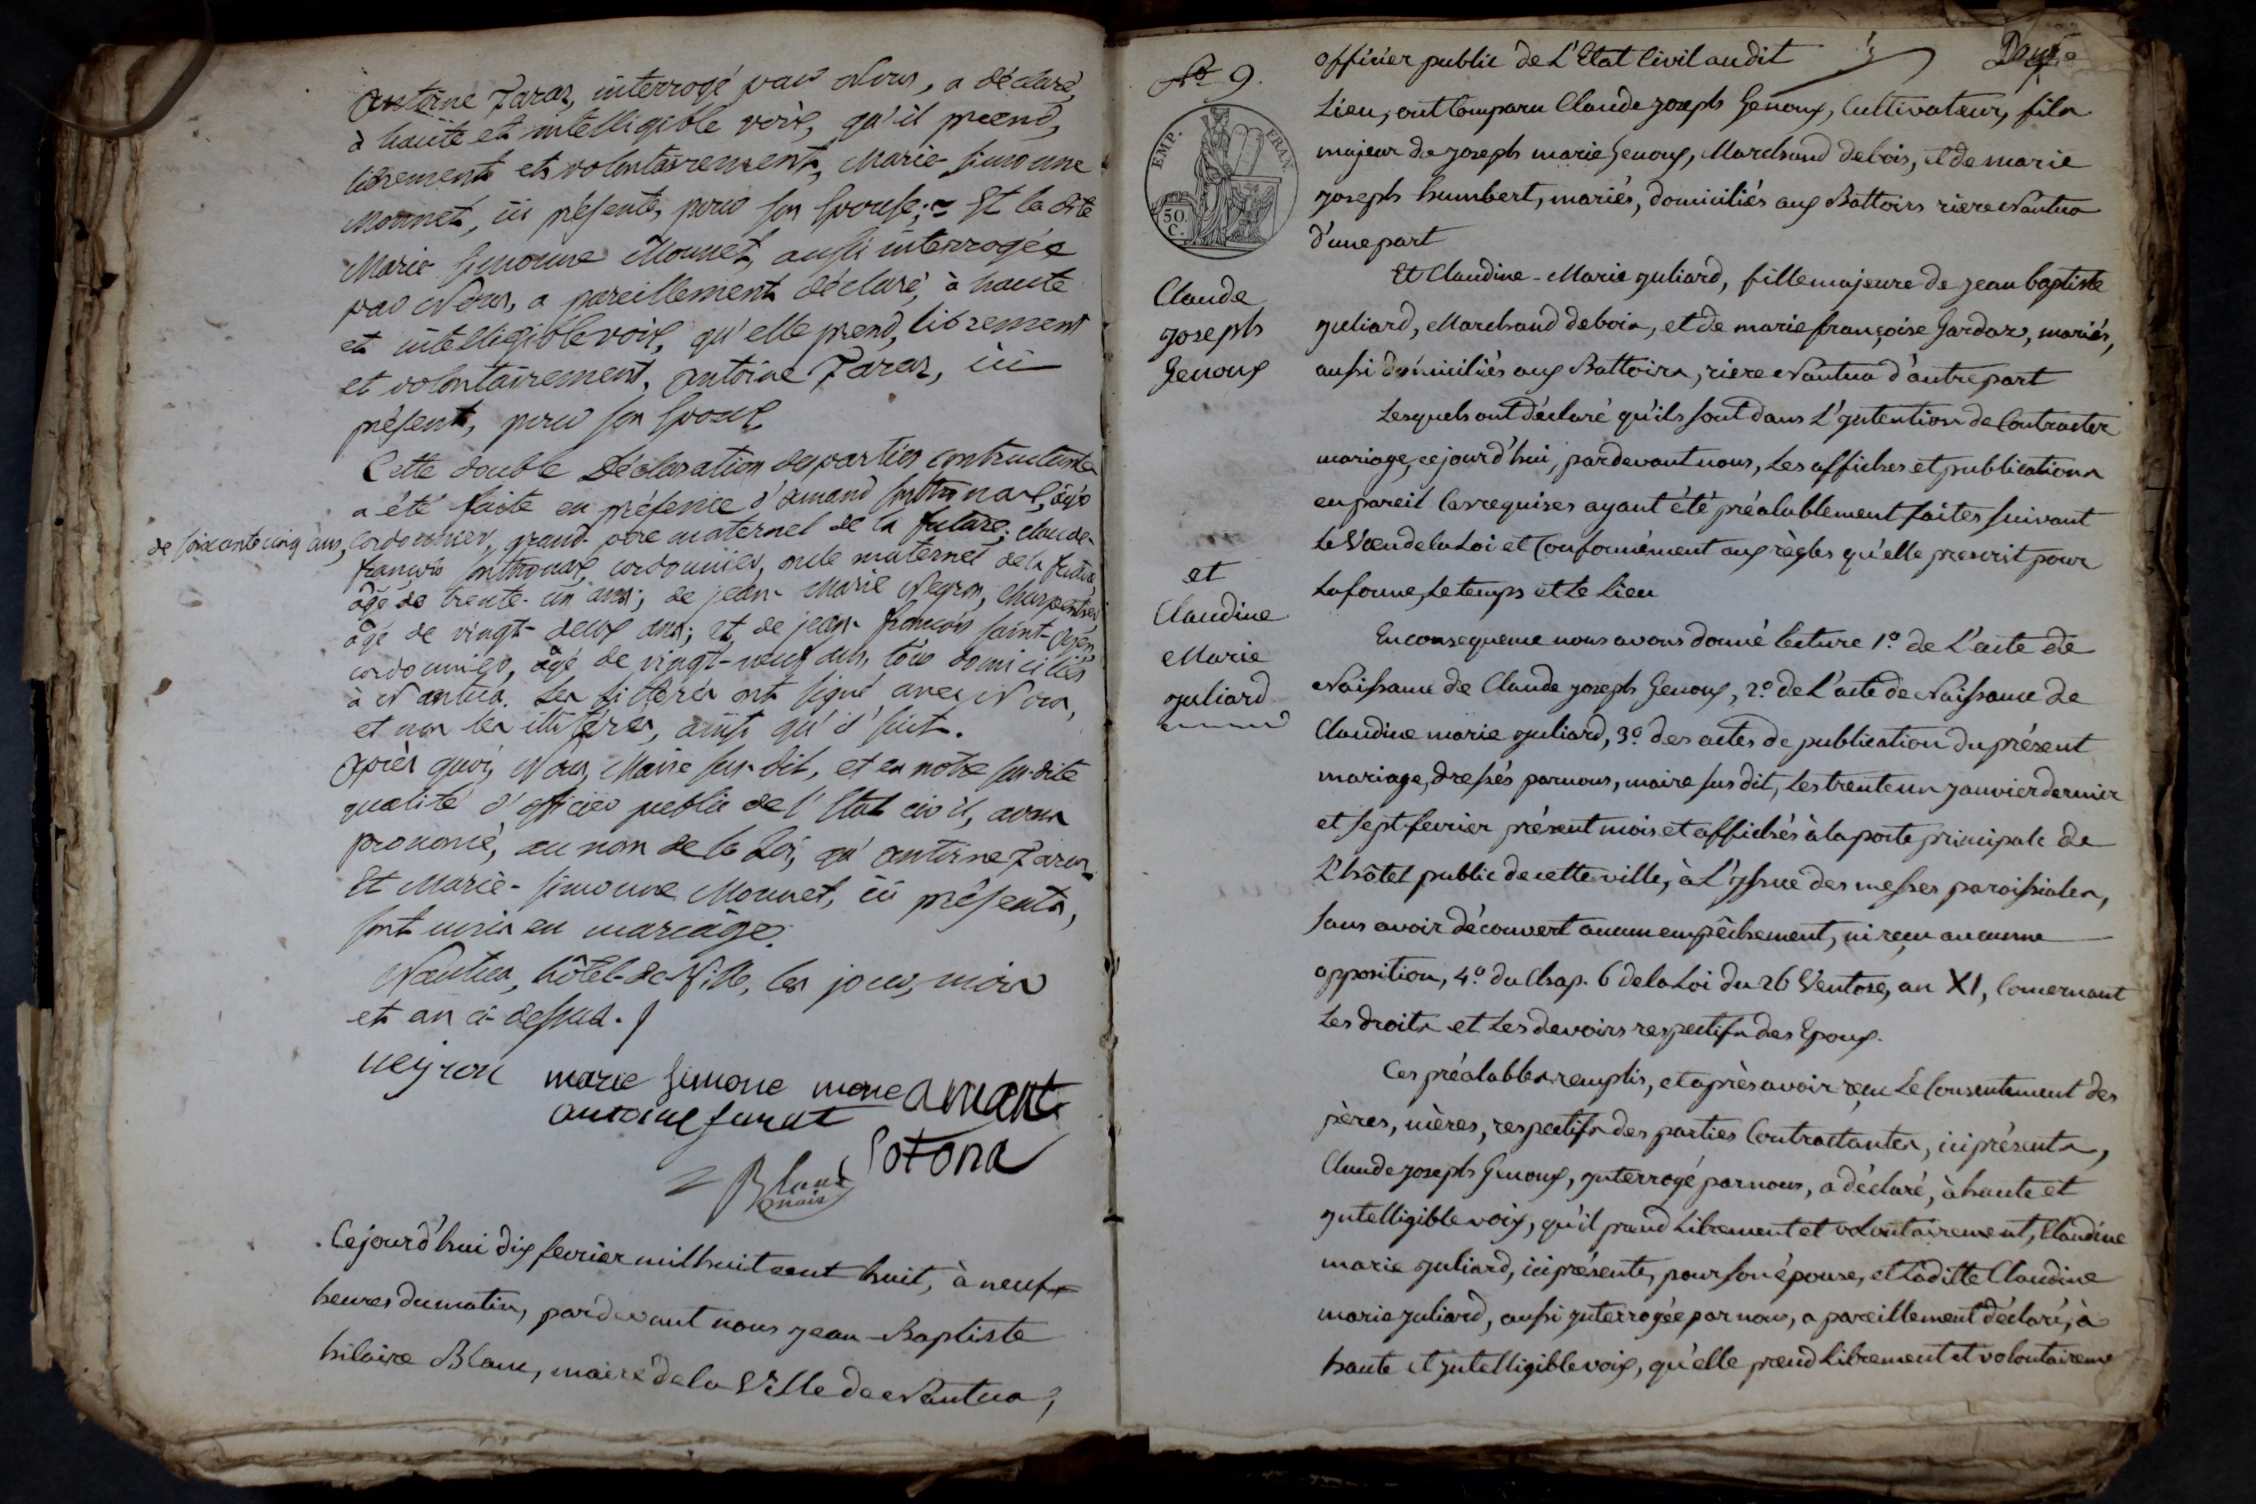 Antoine Zaraz, interrogé par Nous, a déclaré,
à haute et intelligible voix, qu'il prend,
librement et volontairement, Marie Simonne
Monnet, ici présente, pour son Epouse; Et la dite
Marie Simonne Monnet, aussi interrogée
par Nous, a pareillement déclaré, à haute
et intelligible voix, qu'elle prend, librement
et volontairement, Antoine Zaraz, ici
présent, pour son Epoux.
Cette double Déclaration des parties contractantes
a été faite en présence d'amand Sonthonax, âgé
de soixante cinq ans, cordonnier, grand-père maternel de la future; claude-
françois Sonthonax, cordonnier, oncle maternel de la future
âgé de trente-un ans; de jean-Marie Neyron, charpentier
âgé de vingt-deux ans; et de jean-françois Saint-
cordonnier, âgé de vingt-neuf ans, tous domiciliés
à Nantua. Les littérés ont signé avec Nous,
et non les illitérés, ainsi qu'il suit.
Après quoi, Nous, Maire sus-dit, et en notre sus-dite
qualité d'officier public de l'Etat civil, avons
prononcé, au nom de la Loi, qu'antoine Zaraz
Et Marie-Simonne Monnet, ici présents,
sont unis en mariage.
Nantua, hôtel-de-Ville, les jour, mois
et an ci-dessus.
neyron marie Simone mone amant
antoine
Sotona
Blanc
maire
Cejourd'hui dix fevrier mil huit cent huit, à neuf
heures du matin, pardevant nous Jean-Baptiste
hilaire Blanc, maire de la Ville de Nantua,
No 9.
officier public de L'Etat Civil audit
EMP. FRAN.
50.
C.
Lieu, ont Comparu Claude Joseph Genoux, Cultivateur, fils
majeur de Joseph marie Genoux, Marchand de bois, et de marie
Joseph humbert, mariés, domiciliés aux Battoirs riere Nantua
d'une part
Claude
Joseph
Genoux
Et Claudine-Marie Juliard, fille majeure de Jean baptiste
Juliard, Marchand de bois, et de marie françoise Gardaz, mariés,
aussi domiciliés aux Battoirs, riere Nantua d'autre part
Lesquels ont déclaré qu'ils sont dans L'Intention de Contracter
mariage, cejourd'hui, pardevant nous, Les affiches et publications
en pareil Cas requises ayant été préalablement faites suivant
Le Vœu de la Loi et Conformément aux règles qu'elle prescrit pour
La forme, Le temps et Le Lieu
et
Claudine
Marie
Juliard
En consequence nous avons donné lecture 1.° de L'acte de
Naissance de Claude Joseph Genoux, 2.° de L'acte de Naissance de
Claudine marie Juliard, 3.° des actes de publication du présent
mariage, dressés par nous, maire sus dit, Les trente un Janvier dernier
et sept fevrier présent mois et affichés à la porte principale de
L'hôtel public de cette ville, à L'Issue des messes paroissiales,
sans avoir découvert aucun empêchement, ni reçu aucune
opposition, 4.° du Chap. 6 de la Loi du 26 Ventose, an XI, Concernant
Les droits et Les devoirs respectifs des Epoux.
Ces préalables remplis, et après avoir reçu Le Consentement des
pères, mères, respectifs des parties Contractantes, ici présents,
Claude Joseph Genoux, Interrogé par nous, a déclaré, à haute et
Intelligible voix, qu'il prend Librement et volontairement, Claudine
marie Juliard, ici présente, pour son épouse, et Laditte Claudine
marie Juliard, aussi Interrogée par nous, a pareillement déclaré, à
haute et Intelligible voix, qu'elle prend Librement et volontaireme